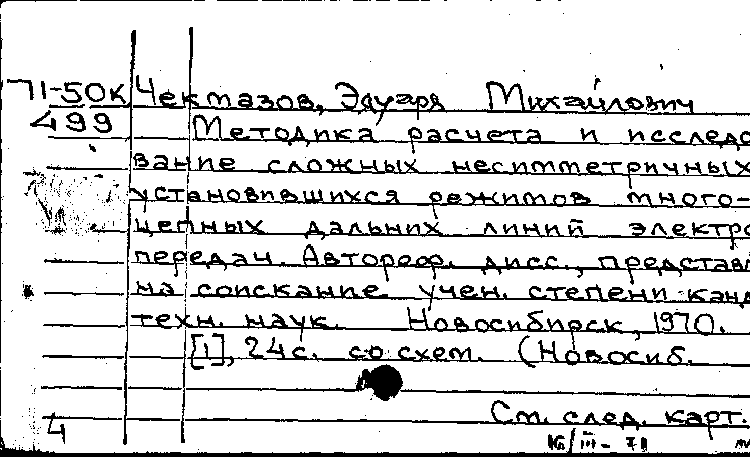 71-50к Чекмазов, Эдуард Михайлович
499 Методика расчета и исследо
вание сложных несимметричных
установившихся режимов много-
цепных дальних линий электро
передач. Автореф. дисс., представл
на соискание учен. степени канд
техн. наук. Новосибирск, 1970.
[1], 24с. со схем. (Новосиб.
См. след. карт.
4 16/III-71